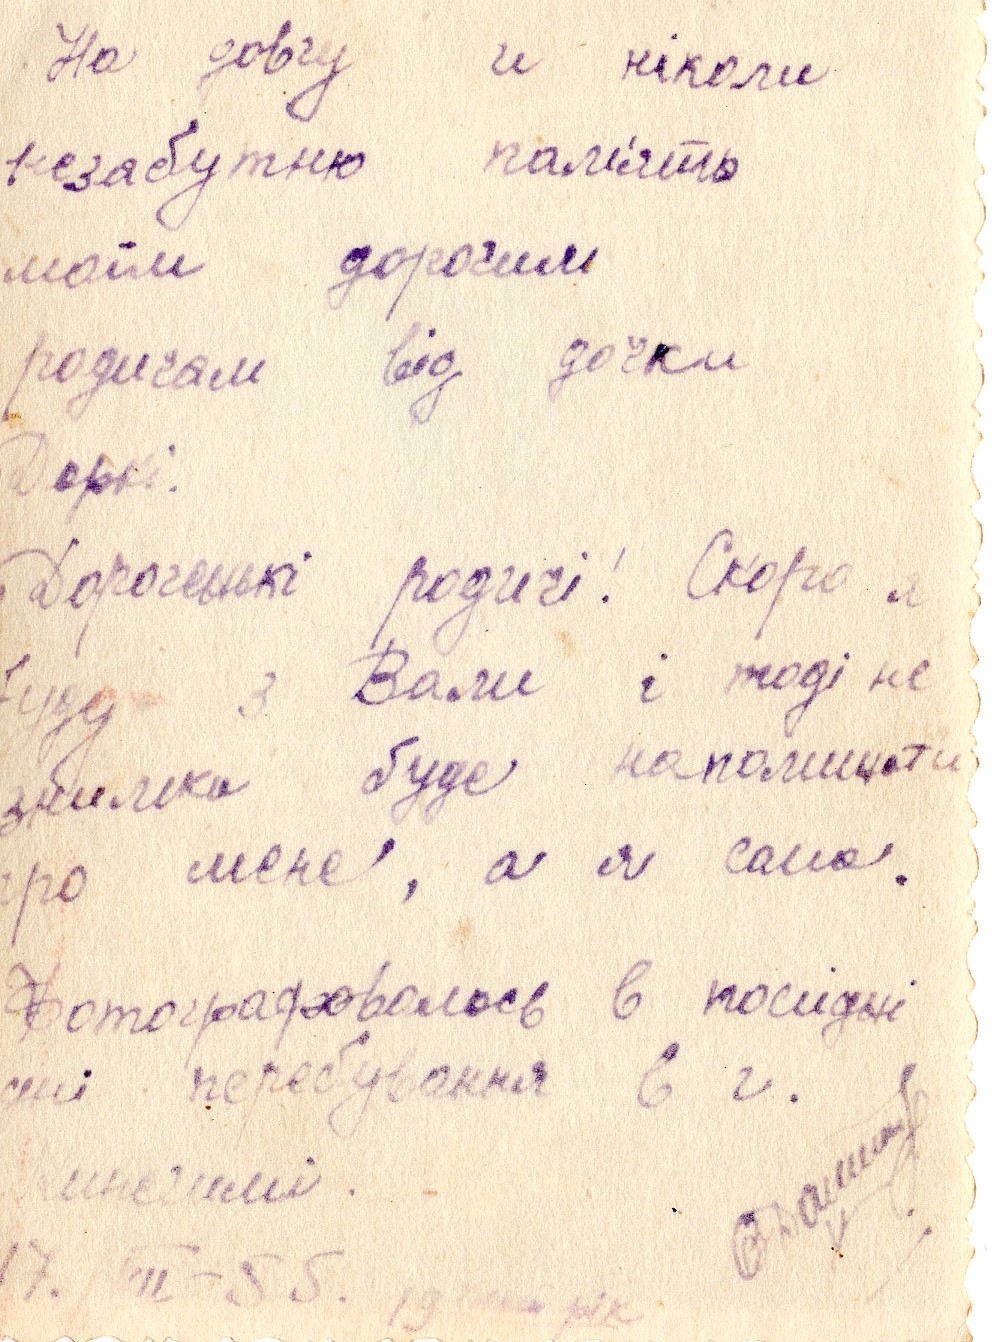 На довгу и ніколи
незабутню пам'ять
моїм дорогим
родичам від дочки
Доркі.
Дорогенькі родичі! Скоро я
буду з Вами і тоді не
знимка буде напоминати
про мене, а я сама.
Фотографовалось в послідні
дні перебування в г.
17. III-55. рік